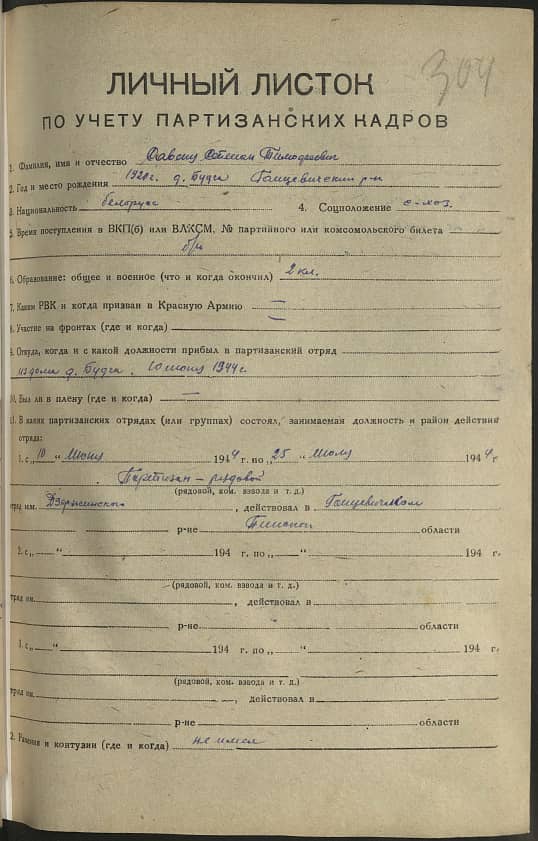 304
ЛИЧНЫЙ ЛИСТОК
ПО УЧЕТУ ПАРТИЗАНСКИХ КАДРОВ
1. Фамилия, имя и отчество Степан Тимофеевич
2. Год и место рождения д. Будча Ганцевичский р-н
3. Национальность белорус 4. Соцположение
5. Время поступления в ВКП(б) или ВЛКСМ, № партийного или комсомольского билета
б/п
6. Образование: общее и военное (что и когда окончил) 2 кл.
7. Каким РВК и когда призван в Красную Армию —
8. Участие на фронтах (где и когда) —
9. Откуда, когда и с какой должности прибыл в партизанский отряд
из дома д. Будча. 10 июня 1944 г.
10. Был ли в плену (где и когда) —
11. В каких партизанских отрядах (или группах) состоял, занимаемая должность и район действий
отряда:
1. с „10 “ Июня 1944 г. по „25 “ Июля 1944 г.
Партизан – рядовой
(рядовой, ком. взвода и т. д.)
отряд им. Дзержинского, действовал в Ганцевичском
р-не Пинской области
2. с „ “ 194 г. по „ “ 194 г.
(рядовой, ком. взвода и т. д.)
отряд им. , действовал в
р-не области
3. с „ “ 194 г. по „ “ 194 г.
(рядовой, ком. взвода и т. д.)
отряд им. , действовал в
р-не области
2. Ранения и контузии (где и когда) не имел